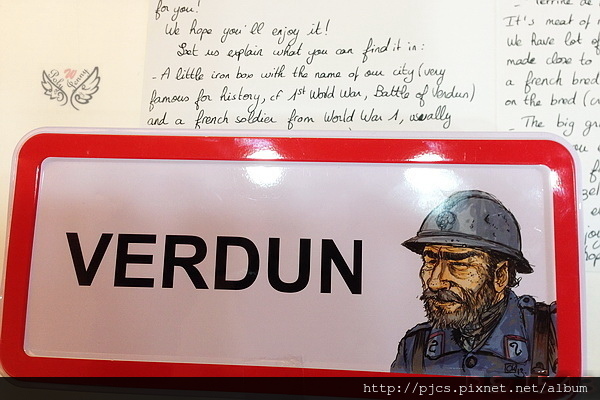 for you!
We hope you'll enjoy it!
Let us explain what you can find it in:
- A little iron box with the name of our city (very
famous for history, cf 1st World War, Battle of Verdun)
and a french soldier from World War 1, usually
It's meat of
We have lot of
made close to
a french bred
on the bred
- The big
VERDUN
http://pjcs.pixnet.net/album